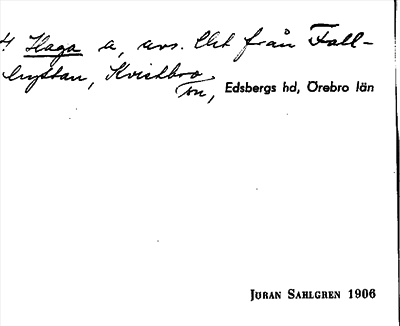 4 Haga a, avs. lht från Fall-
hyttan, Kvistbro
sn, Edsbergs hd, Örebro län
JÖRAN SAHLGREN 1906